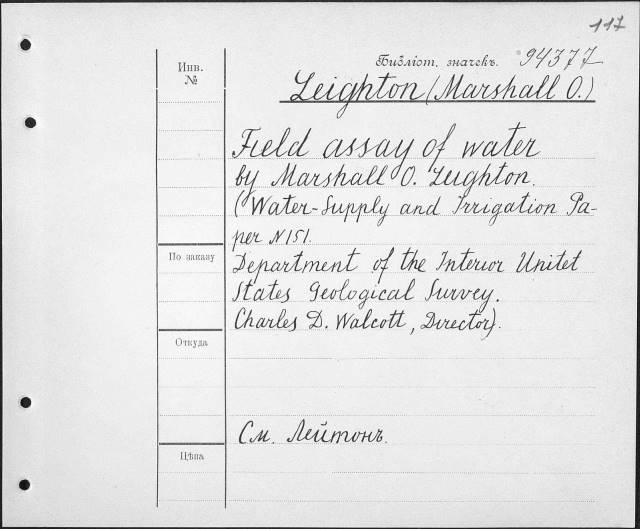 117
Инв. №
Библіот. значекъ. 94377
Leighton (Marshall O.)
Field assay of water
by Marshall O. Leighton.
(Water-Supply and Irrigation Pa-
per N 151.
По заказу
Department of the Interior Unitet
States Geological Survey.
Charles D. Walcott, Director).
Откуда
См. Лейтонъ.
Цѣна